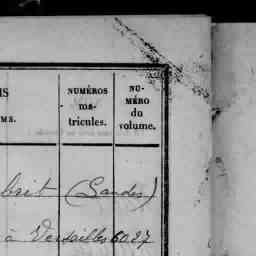 NUMÉROS
ma-
tricules.
NU-
MÉRO
du
volume.
brit (Landes)
à Versailles 6027